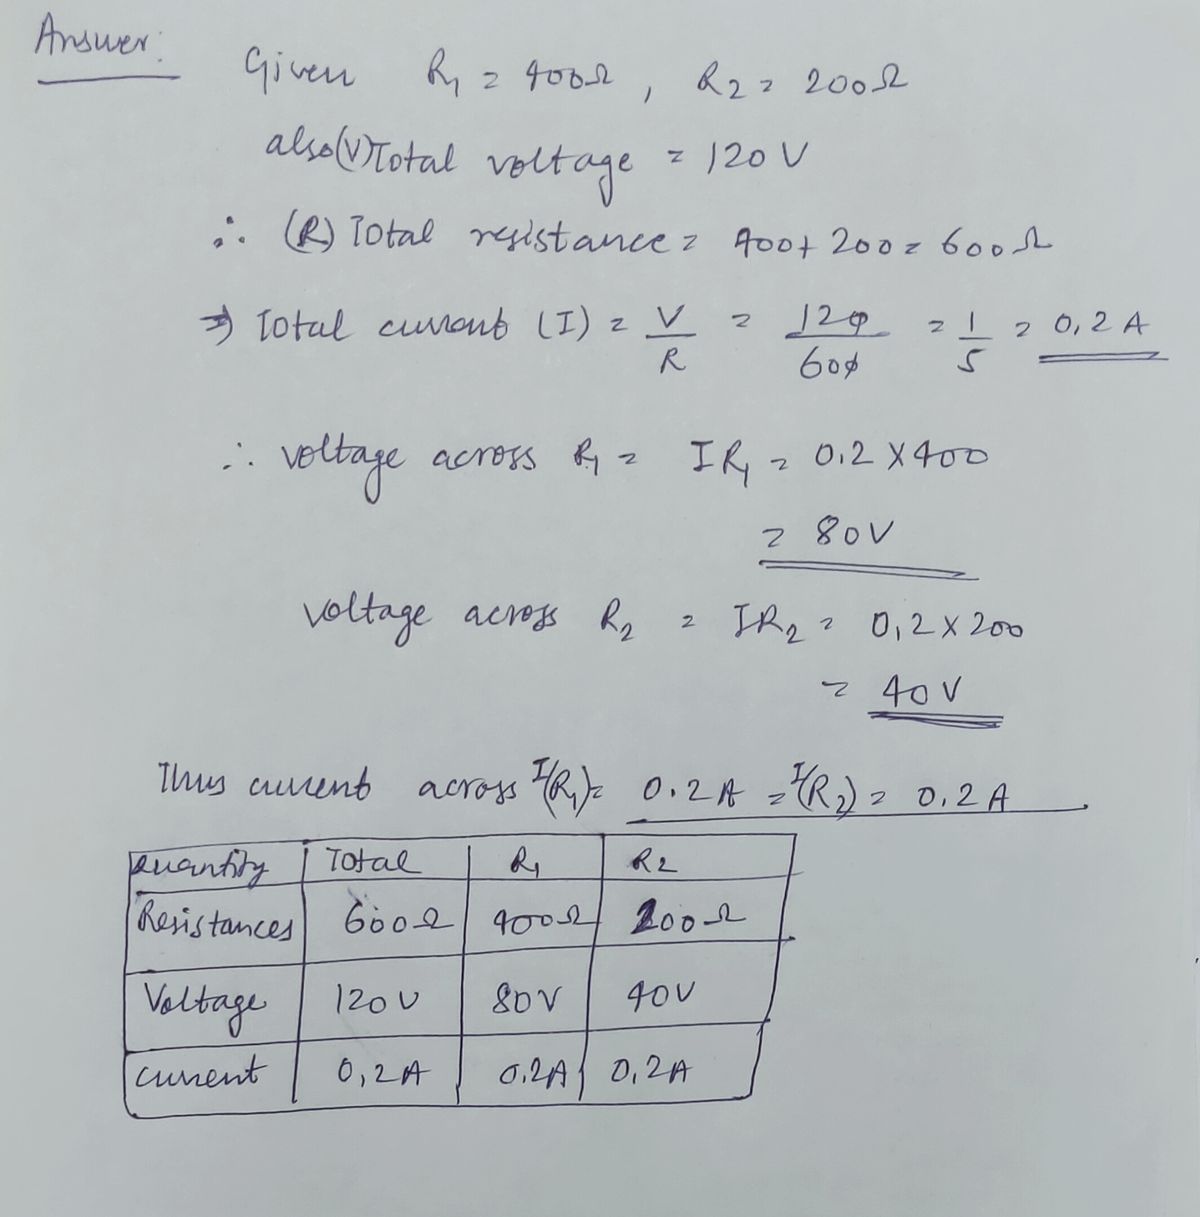 Answer:
Given R1 = 400Ω, R2 = 200Ω
also (V) Total voltage = 120 V
∴ (R) Total resistance = 400 + 200 = 600Ω
⇒ Total current (I) = V/R = 120/600 = 1/5 = 0,2 A
∴ voltage across R1 = IR1 = 0.2 × 400
= 80V
voltage across R2 = IR2 = 0,2 × 200
= 40 V
Thus current across I(R1) = 0.2 A = I(R2) = 0.2 A.
Quantity Total R1 R2
Resistances 600Ω 400Ω 200Ω
Voltage 120V 80V 40V
current 0,2A 0.2A 0,2A